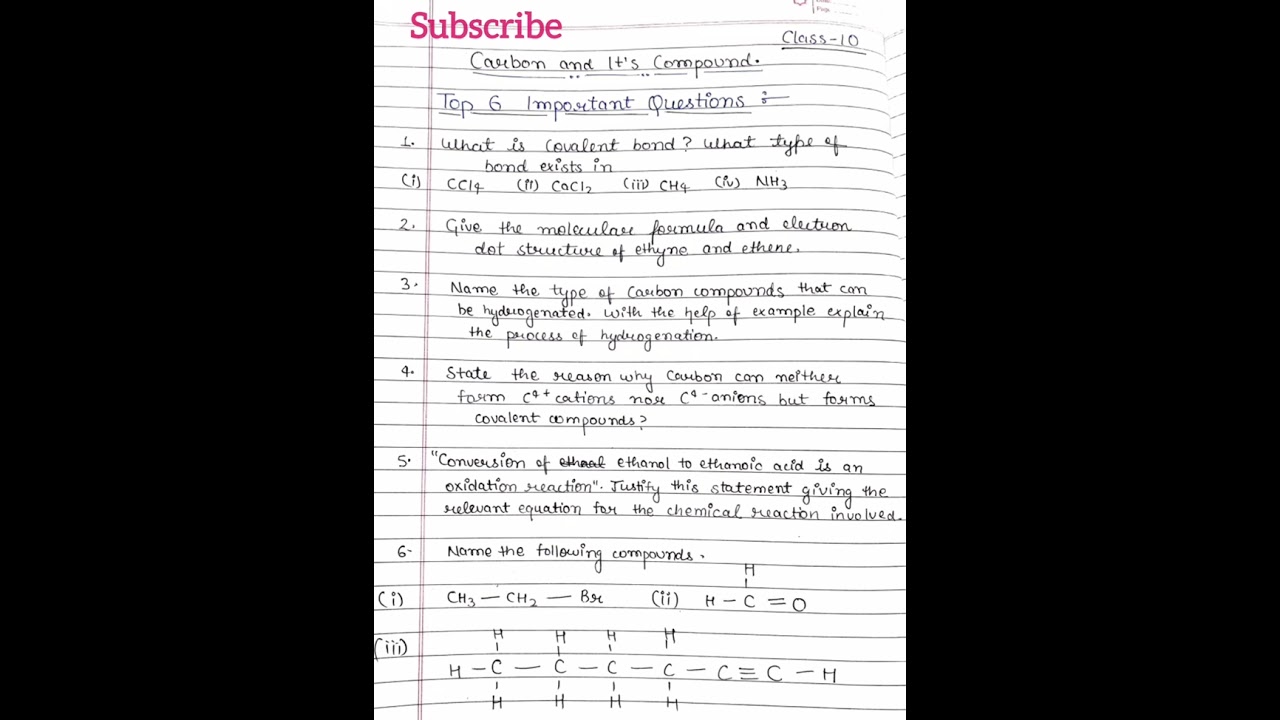 Subscribe
Class-10
Carbon and It's Compound.
Top 6 Important Questions :-
1. What is covalent bond? What type of
bond exists in
(i) CCl4 (ii) CaCl2 (iii) CH4 (iv) NH3
2. Give the molecular formula and electron
dot structure of ethyne and ethene.
3. Name the type of Carbon compounds that can
be hydrogenated. With the help of example explain
the process of hydrogenation.
4. State the reason why Carbon can neither
form C4+ cations nor C4- anions but forms
covalent compounds?
5. "Conversion of ethanol to ethanoic acid is an
oxidation reaction". Justify this statement giving the
relevant equation for the chemical reaction involved.
6- Name the following compounds.
H
(i) CH3 — CH2 — Br (ii) H — C = O
(iii) H H H H
H — C — C — C — C — C ≡ C — H
H H H H